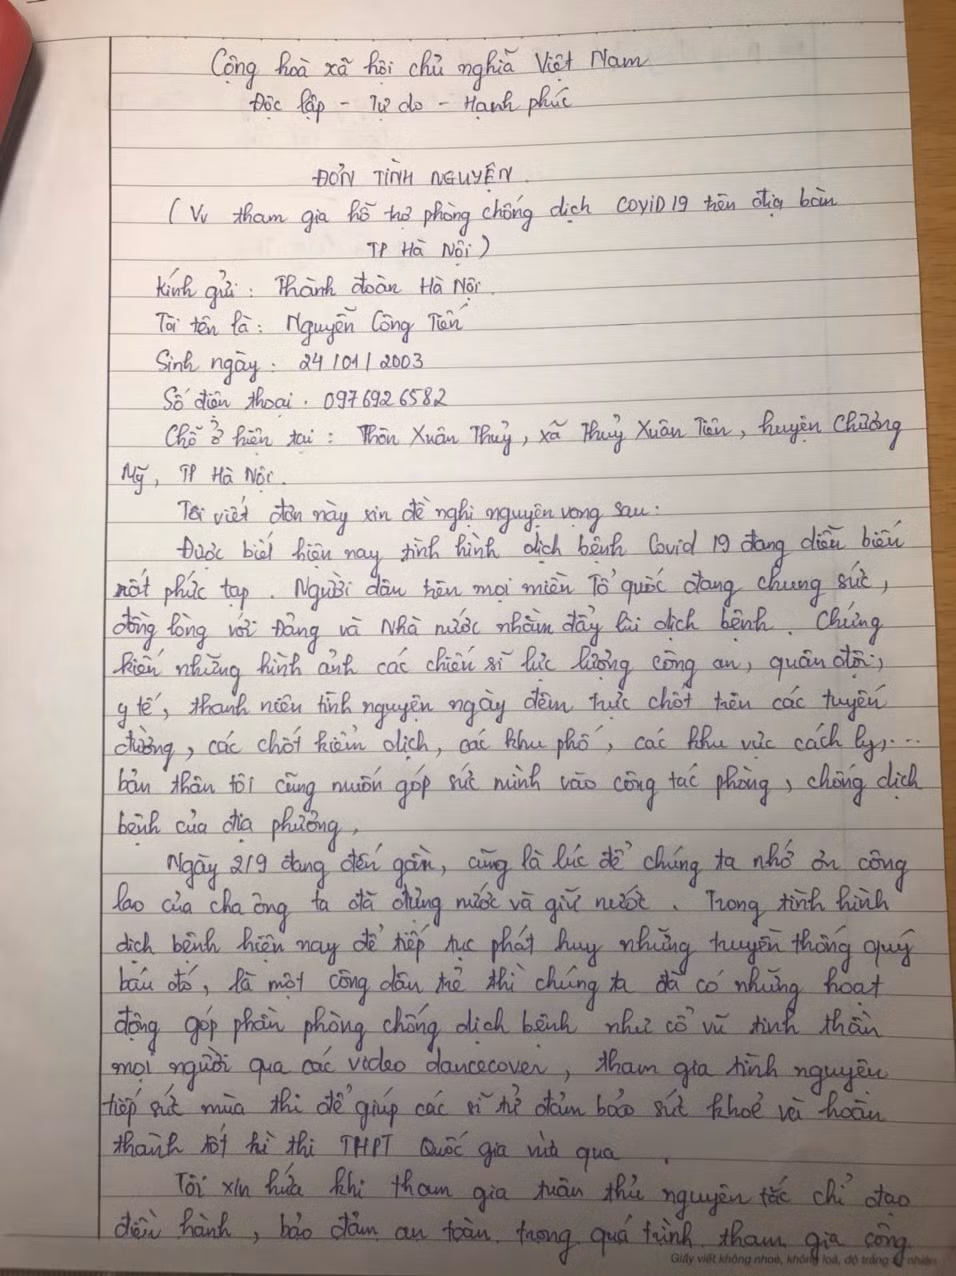 Cộng hoà xã hội chủ nghĩa Việt Nam
Độc lập - Tự do - Hạnh phúc
ĐƠN TÌNH NGUYỆN.
(Vv tham gia hỗ trợ phòng chống dịch COVID 19 trên địa bàn
TP Hà Nội)
Kính gửi: Thành đoàn Hà Nội.
Tôi tên là: Nguyễn Công Tiến
Sinh ngày: 24/01/2003
Số điện thoại: 0976926582
Chỗ ở hiện tại: Thôn Xuân Thuỷ, xã Thuỷ Xuân Tiên, huyện Chương
Mỹ, TP Hà Nội.
Tôi viết đơn này xin đề nghị nguyện vọng sau:
Được biết hiện nay tình hình dịch bệnh Covid 19 đang diễn biến
rất phức tạp. Người dân trên mọi miền Tổ quốc đang chung sức,
đồng lòng với Đảng và Nhà nước nhằm đẩy lùi dịch bệnh. Chứng
kiến những hình ảnh các chiến sĩ lực lượng công an, quân đội,
y tế, thanh niên tình nguyện ngày đêm trực chốt trên các tuyến
đường, các chốt kiểm dịch, các khu phố, các khu vực cách ly,...
bản thân tôi cũng muốn góp sức mình vào công tác phòng, chống dịch
bệnh của địa phương,
Ngày 2/9 đang đến gần, cũng là lúc để chúng ta nhớ ơn công
lao của cha ông ta đã dựng nước và giữ nước. Trong tình hình
dịch bệnh hiện nay để tiếp tục phát huy những truyền thống quý
báu đó, là một công dân trẻ thì chúng ta đã có những hoạt
động góp phần phòng chống dịch bệnh như cổ vũ tinh thần
mọi người qua các video dancecover, tham gia tình nguyện
tiếp sức mùa thi để giúp các sĩ tử đảm bảo sức khoẻ và hoàn
thành tốt kì thi THPT Quốc gia vừa qua.
Tôi xin hứa khi tham gia tuân thủ nguyên tắc chỉ đạo
điều hành, bảo đảm an toàn trong quá trình tham gia công
Giấy viết không nhoè, không loá, độ trắng tự nhiên